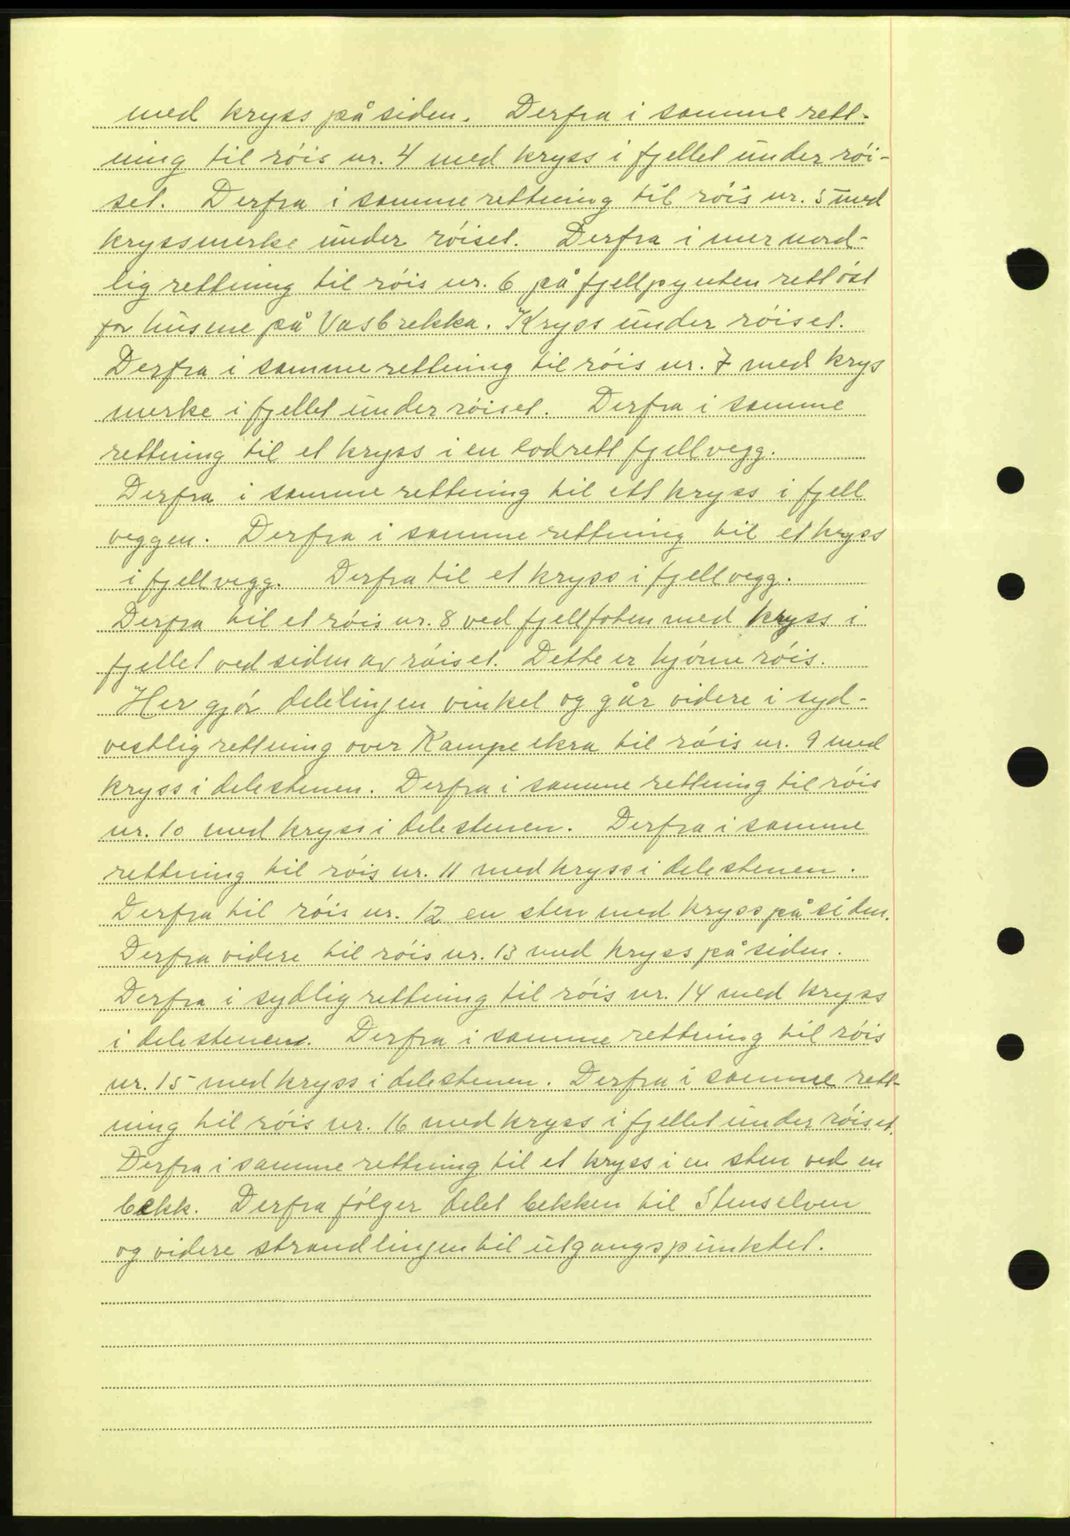 med kryss på siden. Derfra i samme rett-
ning til røis nr. 4 med kryss i fjellet under røi-
set. Derfra i samme rettning til røis nr. 5 med
kryssmerke under røiset. Derfra i mer nord-
lig rettning til røis nr. 6 på fjellpynten rett øst
for husene på Vasbrekka. Kryss under røiset.
Derfra i samme rettning til røis nr. 7 med krys
merke i fjellet under røiset. Derfra i samme
rettning til et kryss i en lodrett fjellvegg.
Derfra i samme rettning til ett kryss i fjell
veggen. Derfra i samme rettning til et kryss
i fjellvegg. Derfra til et kryss i fjellvegg.
Derfra til et røis nr. 8 ved fjellfoten med kryss i
fjellet ved siden av røiset. Dette er hjørne røis.
Her gjør delelinjen vinkel og går videre i syd-
vestlig rettning over Kampeekra til røis nr. 9 med
kryss i delestenen. Derfra i samme rettning til røis
nr. 10 med kryss i delestenen. Derfra i samme
rettning til røis nr. 11 med kryss i delestenen.
Derfra til røis nr. 12 en sten med kryss på siden.
Derfra videre til røis nr. 13 med kryss på siden.
Derfra i sydlig rettning til røis nr. 14 med kryss
i delestenen. Derfra i samme rettning til røis
nr. 15 med kryss i delestenen. Derfra i samme rett-
ning til røis nr. 16 med kryss i fjellet under røiset.
Derfra i samme rettning til et kryss i en sten ved en
bekk. Derfra følger delet bekken til Stenselven
og videre strandlinjen til utgangspunktet.